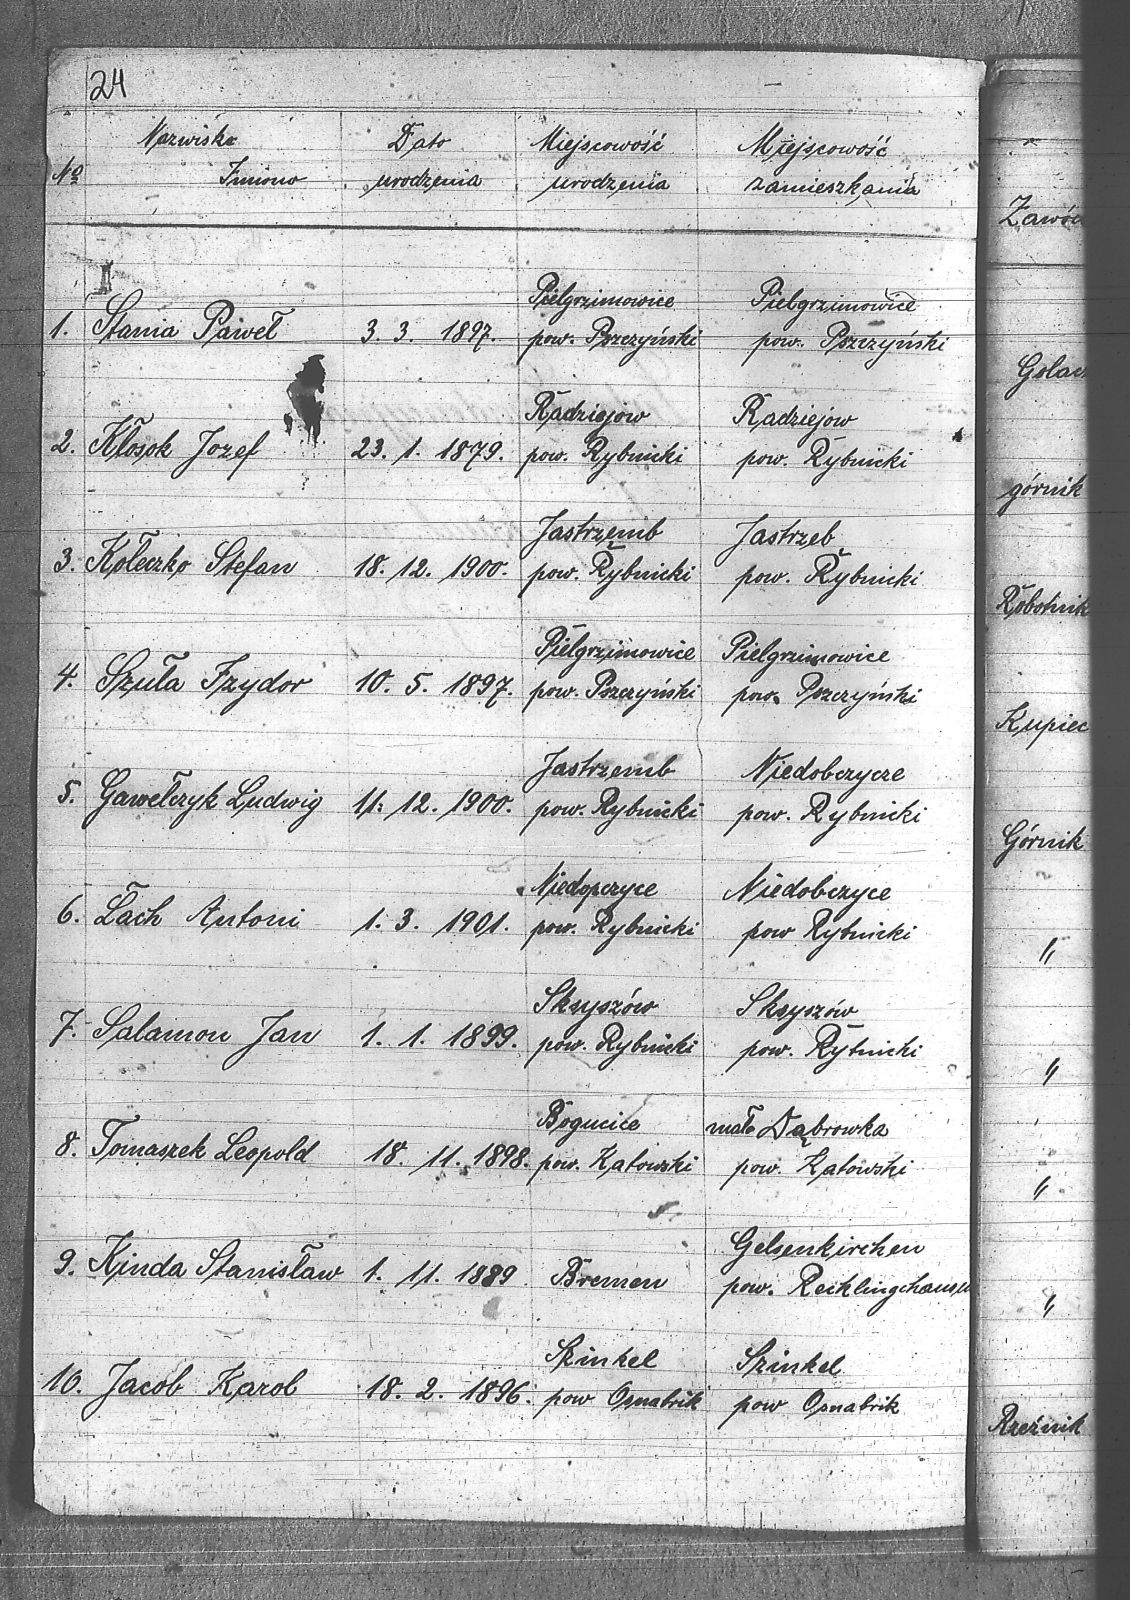 24
Nazwisko Data Miejscowość Miejscowość
No Imiono urodzenia urodzenia zamieszkania
Zawód
II
Pielgrzimowice Pielgrzimowice
1. Stania Paweł 3. 3. 1897. pow. Pszczyński pow. Pszczyński
Radziejow Radziejow
2. Kłosok Jozef 23. 1. 1879. pow. Rybnicki pow. Rybnicki
górnik
Jastrzemb Jastrzeb
3. Kołeczko Stefan 18. 12. 1900. pow. Rybnicki pow. Rybnicki
Robotnik
Pielgrzimowice Pielgrzimowice
4. Szuła Izydor 10. 5. 1897. pow. Pszczyński pow. Pszczyński
Kupiec
Jastrzemb Niedobczycze
5. Gawełczyk Ludwig 11. 12. 1900. pow. Rybnicki pow. Rybnicki
Górnik
Niedopczyce Niedobczyce
6. Łach Antoni 1. 3. 1901. pow. Rybnicki pow Rybnicki
"
Skryszów Skryszów
7. Salamon Jan 1. 1. 1899. pow. Rybnicki pow. Rybnicki
"
Bogucice mało Dąbrowka
8. Tomaszek Leopold 18. 11. 1898. pow. Katowski pow. Katowski
"
Gelsenkirchen
9. Kinda Stanisław 1. 11. 1889 Bremen pow. Recklingchausen
"
Szinkel Szinkel
10. Jacob Karol 18. 2. 1896. pow Osnabrik pow Osnabrik
Rzeźnik